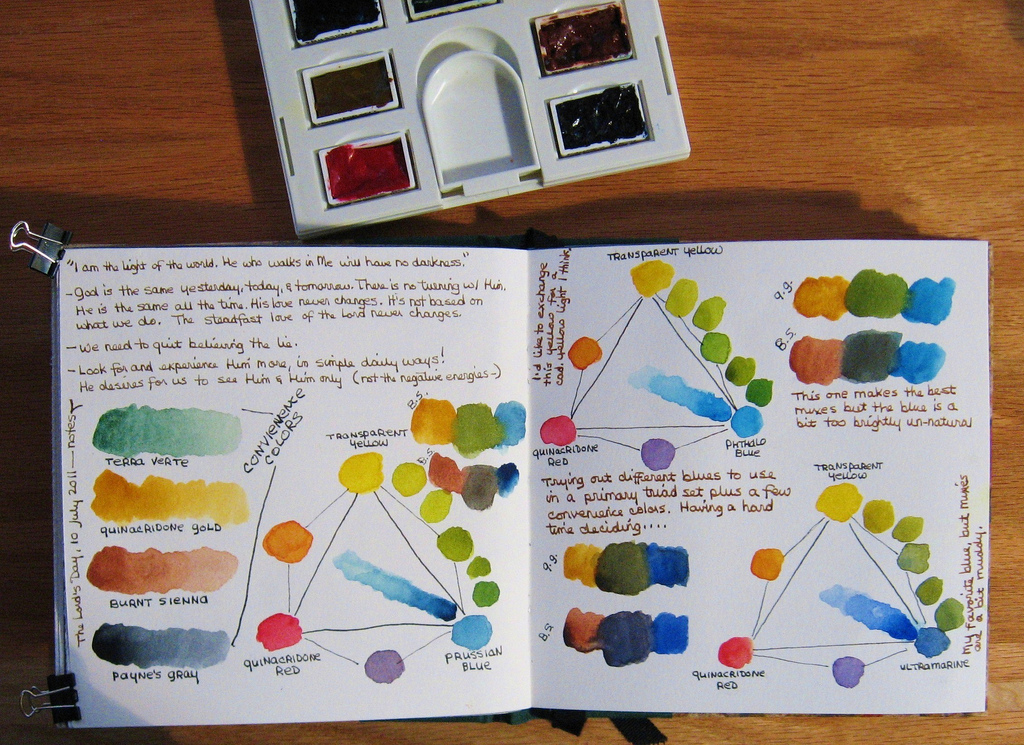 "I am the light of the world. He who walks in Me will have no darkness."
- God is the same yesterday, today, & tomorrow. There is no turning w/ Him.
He is the same all the time. His love never changes. It's not based on
what we do. The steadfast love of the Lord never changes.
- We need to quit believing the lie.
- Look for and experience Him more, in simple daily ways!
He desires for us to see Him & Him only (not the negative energies-)
The Lord's Day, 10 July 2011 — notes
TERRA VERTE
QUINACRIDONE GOLD
BURNT SIENNA
PAYNE'S GRAY
CONVIENENCE
COLORS
B.S.
B.S.
TRANSPARENT
YELLOW
QUINACRIDONE
RED
PRUSSIAN
BLUE
I'd like to exchange
this yellow for a
cad. yellow light I think.
TRANSPARENT YELLOW
QUINACRIDONE
RED
PHTHALO
BLUE
q.g.
B.S.
This one makes the best
mixes but the blue is a
bit too brightly un-natural
Trying out different blues to use
in a primary triad set plus a few
convenience colors. Having a hard
time deciding....
q.g.
B.S.
TRANSPARENT
YELLOW
QUINACRIDONE
RED
ULTRAMARINE
My favorite blue, but mixes
are a bit muddy.